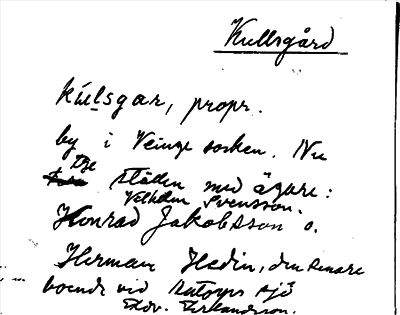 Kullsgård
kúlsgar, propr.
by i Veinge socken. Nu
tre ställen med ägare:
Vilhelm Svensson.
Konrad Jakobsson o.
Herman Hedin, den senare
boende vid sjö
Edv. Erlandsson.